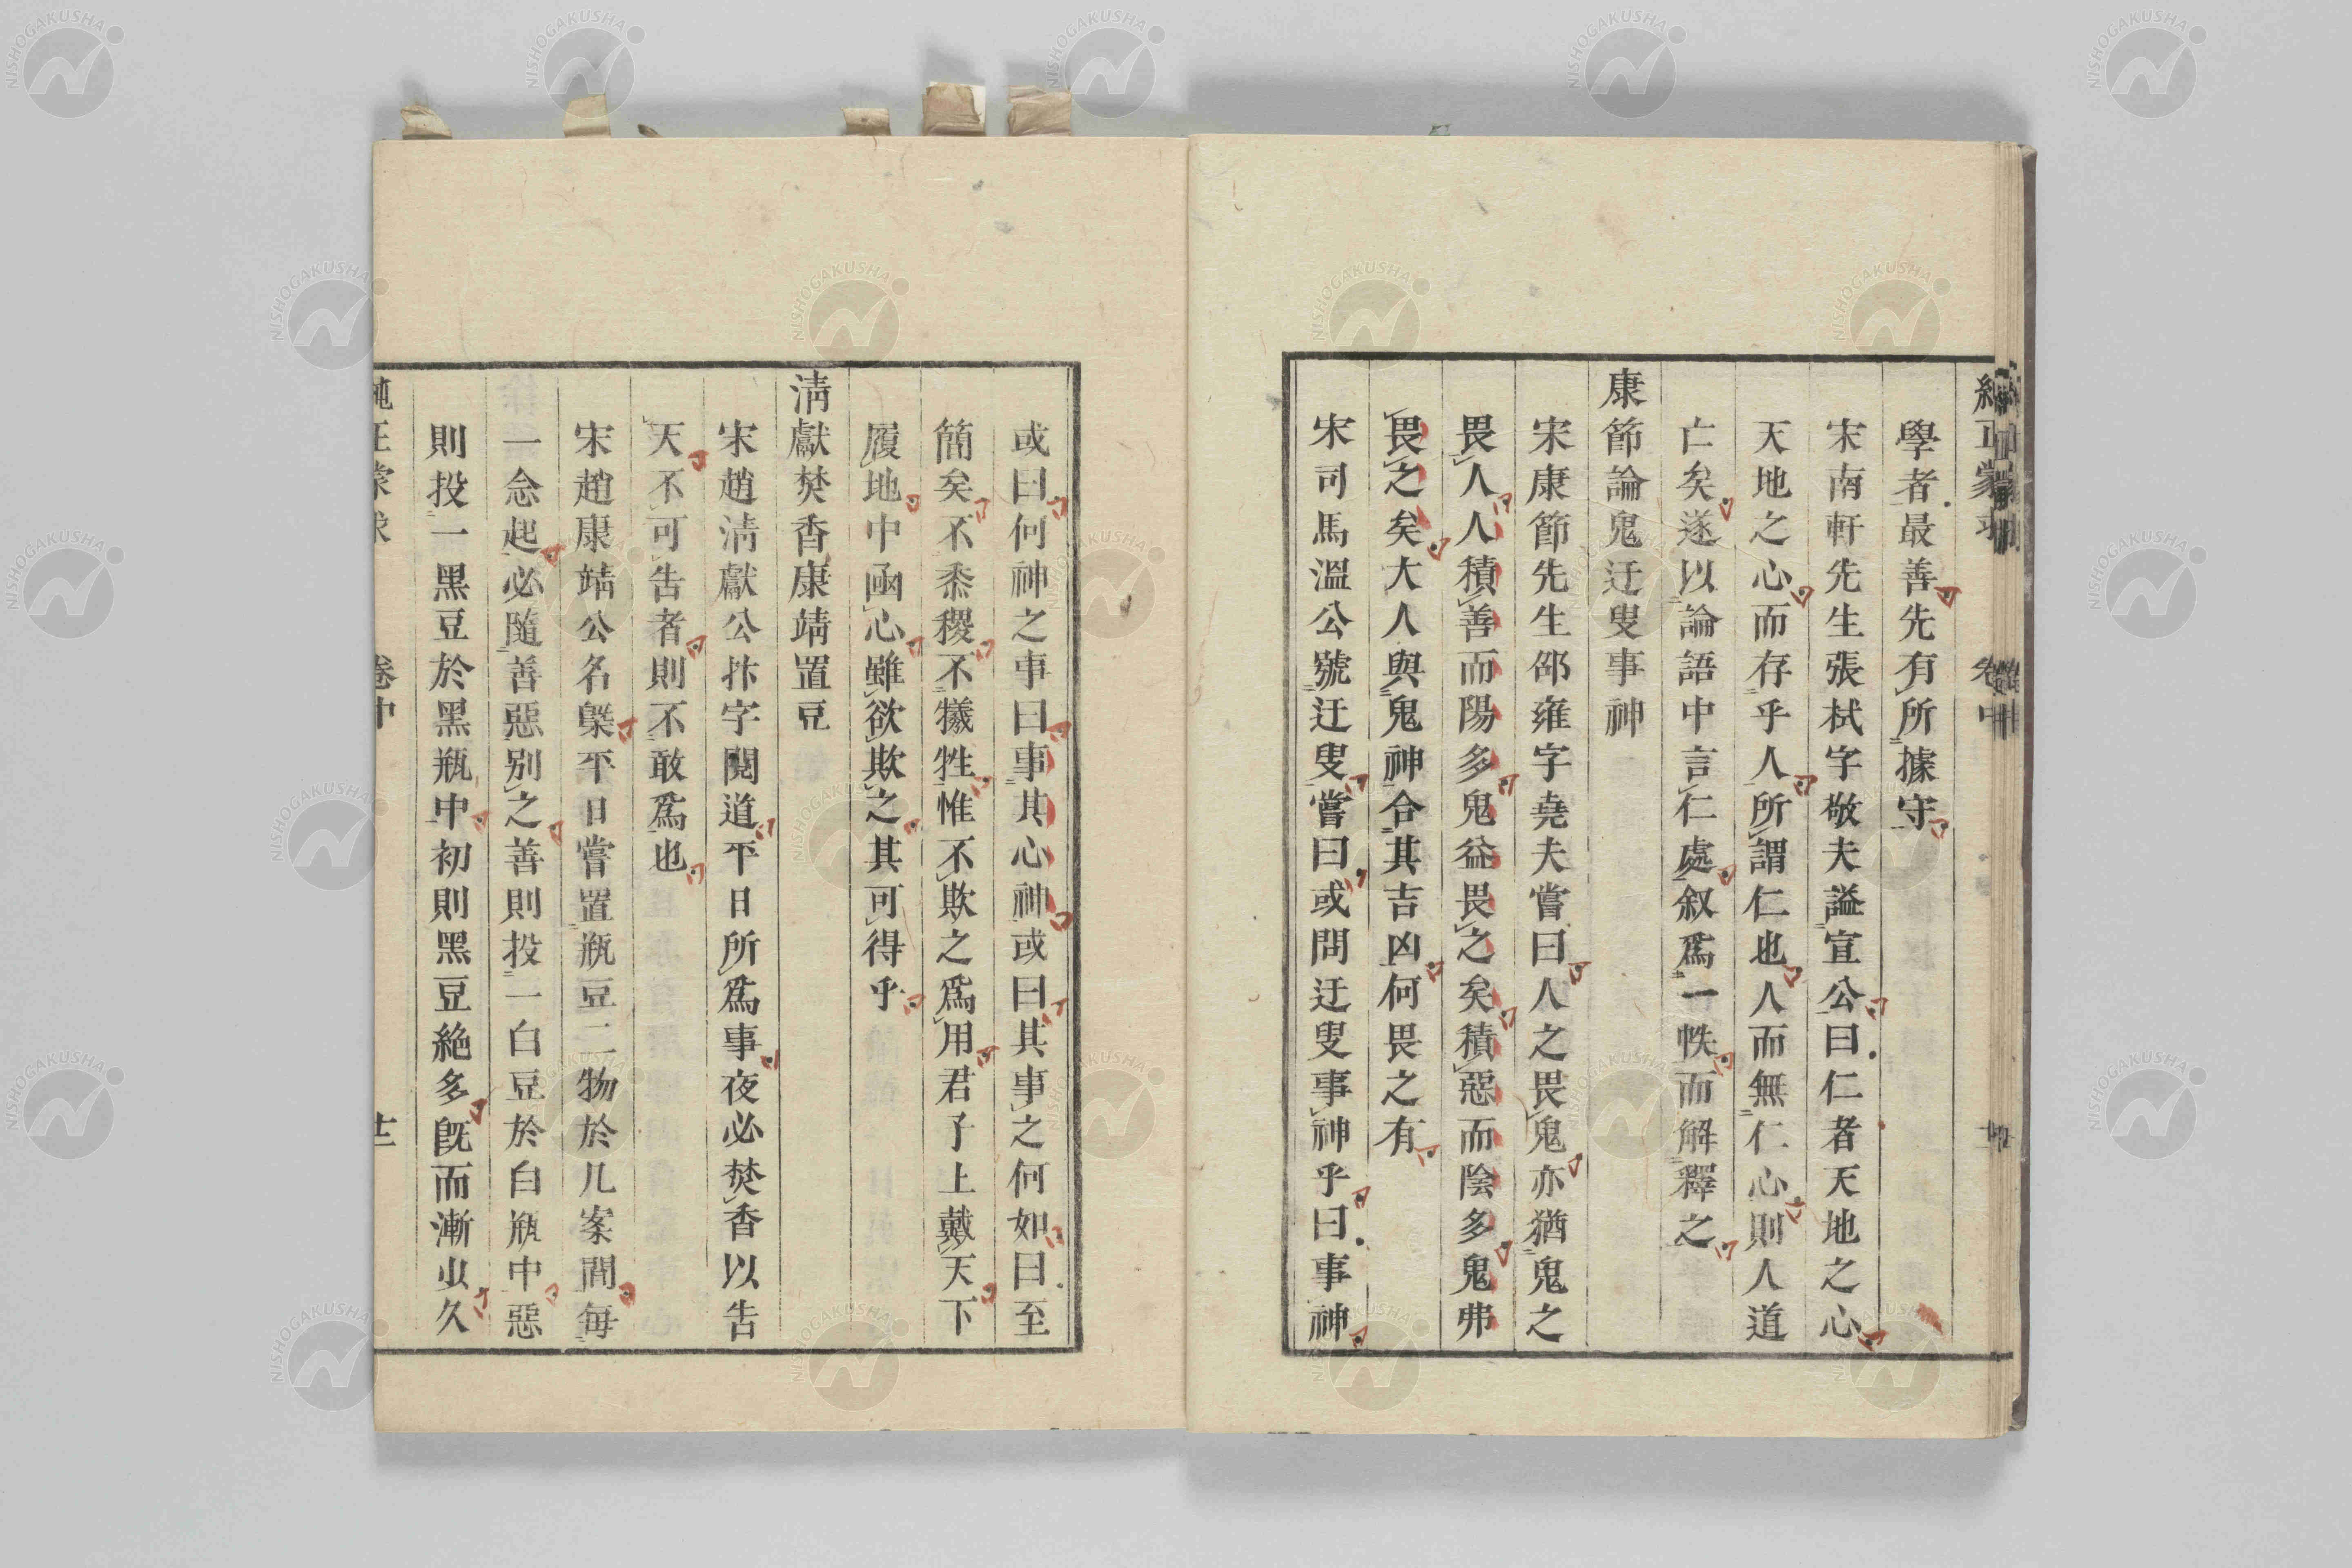 學者最善先有所據守
宋南軒先生張栻字敬夫謚宣公曰仁者天地之心
天地之心而存乎人所謂仁也人而無仁心則人道
亡矣遂以論語中言仁處叙爲一帙而解釋之
康節論鬼迂叟事神
宋康節先生邵雍字堯夫嘗曰人之畏鬼亦猶鬼之
畏人人積善而陽多鬼益畏之矣積惡而陰多鬼弗
畏之矣大人與鬼神合其吉凶何畏之有
宋司馬溫公號迂叟嘗曰或問迂叟事神乎曰事神
或曰何神之事曰事其心神或曰其事之何如曰至
簡矣不黍稷不犧牲惟不欺之爲用君子上戴天下
履地中函心雖欲欺之其可得乎
淸獻焚香康靖置豆
宋趙淸獻公抃字閱道平日所爲事夜必焚香以告
天不可告者則不敢爲也
宋趙康靖公名槩平日嘗置瓶豆二物於几案間每
一念起必隨善惡別之善則投一白豆於白瓶中惡
則投一黑豆於黑瓶中初則黑豆絶多旣而漸少久
卷中
十二
NISHOGAKUSHA